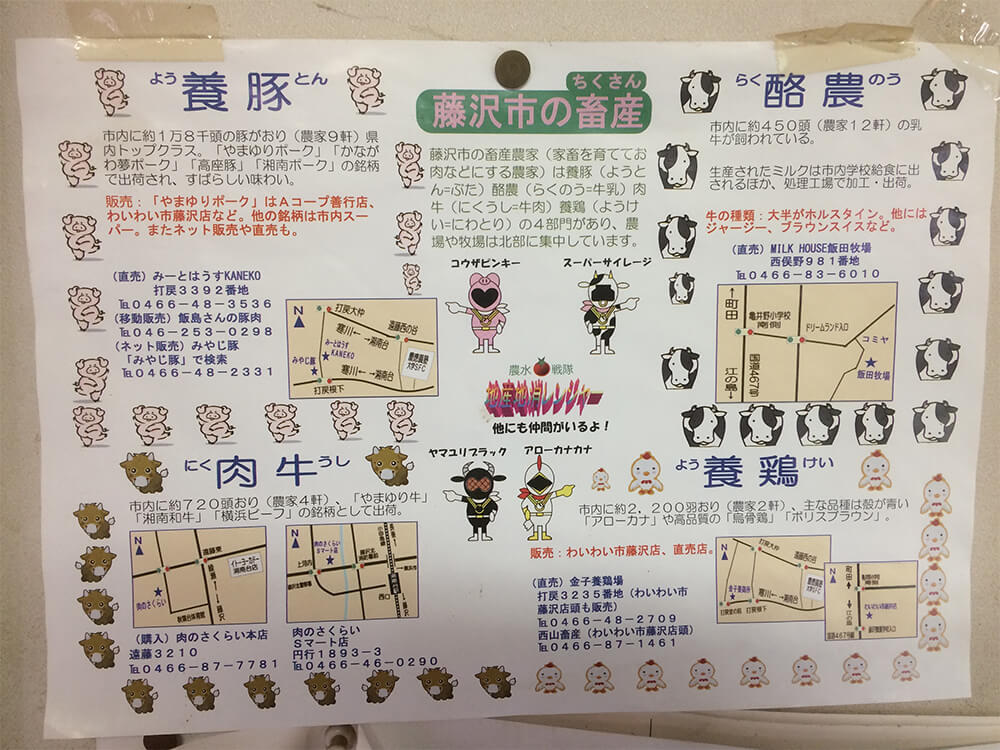 よう 養豚 とん
市内に約1万8千頭の豚がおり（農家9軒）県
内トップクラス。「やまゆりポーク」「かなが
わ夢ポーク」「高座豚」「湘南ポーク」の銘柄
で出荷され、すばらしい味わい。
販売：「やまゆりポーク」はAコープ善行店、
わいわい市藤沢店など。他の銘柄は市内スー
パー。またネット販売や直売も。
（直売）みーとはうすKANEKO
打戻3392番地
℡0466-48-3536
（移動販売）飯島さんの豚肉
℡046-253-0298
（ネット販売）みやじ豚
「みやじ豚」で検索
℡0466-48-2331
N
打戻大仲
遠藤西の谷
寒川←→湘南台
みーとはうす
KANEKO
みやじ豚
慶應義塾
大学SFC
寒川←→湘南台
打戻根下
ちくさん
藤沢市の畜産
藤沢市の畜産農家（家畜を育ててお
肉などにする農家）は養豚（ようと
ん=ぶた）酪農（らくのう=牛乳）肉
牛（にくうし=牛肉）養鶏（ようけ
い=にわとり）の4部門があり、農
場や牧場は北部に集中しています。
コウザピンキー
スーパーサイレージ
農水 戦隊
地産地消レンジャー
他にも仲間がいるよ！
ヤマユリブラック
アローカナカナ
らく 酪農 のう
市内に約450頭（農家12軒）の乳
牛が飼われている。
生産されたミルクは市内学校給食に出
されるほか、処理工場で加工・出荷。
牛の種類：大半がホルスタイン。他には
ジャージー、ブラウンスイスなど。
（直売）MILK HOUSE飯田牧場
西俣野981番地
℡0466-83-6010
←町田
亀井野小学校
南側
ドリームランド入口
コミヤ
飯田牧場
国道467号
江の島→
N
にく 肉牛 うし
市内に約720頭おり（農家4軒）、「やまゆり牛」
「湘南和牛」「横浜ビーフ」の銘柄として出荷。
N
遠藤東
イトーヨーカドー
湘南台店
綾瀬←→藤沢
肉のさくらい
秋葉台体育館
（購入）肉のさくらい本店
遠藤3210
℡0466-87-7781
N
肉のさくらい
Sマート店
西口
肉のさくらい
Sマート店
円行1893-3
℡0466-46-0290
よう 養鶏 けい
市内に約2,200羽おり（農家2軒）、主な品種は殻が青い
「アローカナ」や高品質の「烏骨鶏」「ボリスブラウン」。
販売：わいわい市藤沢店、直売店。
（直売）金子養鶏場
打戻3235番地（わいわい市
藤沢店頭も販売）
℡0466-48-2709
西山畜産（わいわい市藤沢店頭）
℡0466-87-1461
N
打戻大仲
遠藤西の谷
金子養鶏所
寒川←→湘南台
打戻根下
N
町田
江の島
わいわい市藤沢店
国道467号線